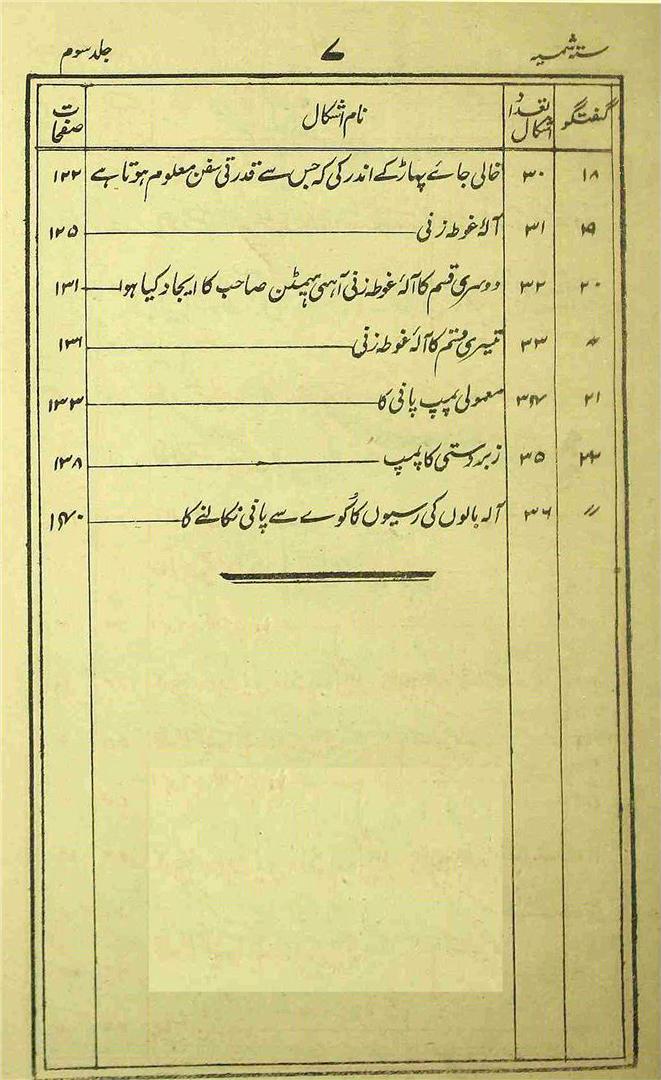 ستہ شمسیہ ۷ جلد سوم
گفتگو تعداد اشکال نام اشکال صفحات
۱۸ ۳۰ خالی جائے پہاڑ کے اندر کی کہ جس سے قدرتی سفن معلوم ہوتا ہے ۱۲۲
۱۹ ۳۱ آلۂ غوطہ زنی ۱۲۵
۲۰ ۳۲ دوسری قسم کا آلۂ غوطہ زنی آہسی ہمپٹن صاحب کا ایجاد کیا ہوا ۱۳۱
〃 ۳۳ تیسری قسم کا آلۂ غوطہ زنی ۱۳۱
۲۱ ۳۴ معمولی پمپ پانی کا ۱۳۳
۲۲ ۳۵ زبردستی کا پمپ ۱۳۸
〃 ۳۶ آلہ بالوں کی رسیوں کا کُوے سے پانی نکالنے کا ۱۴۰